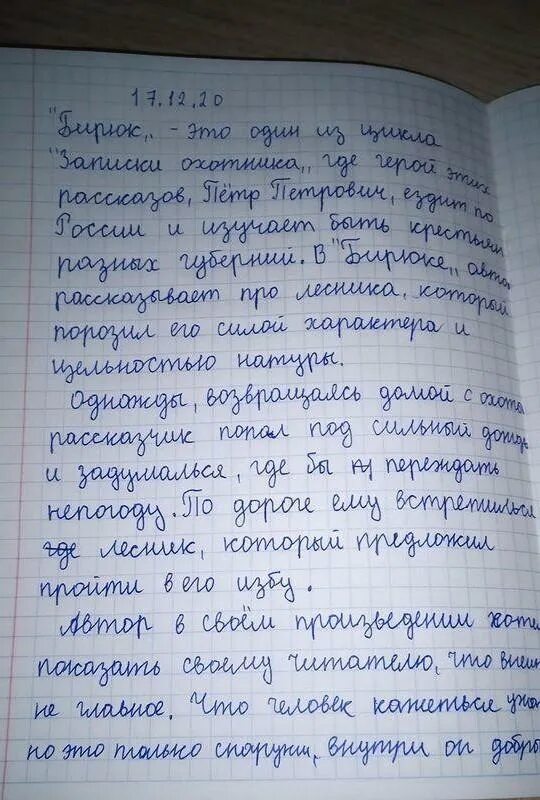 17.12.20
"Бирюк„ - это один из цикла
"Записки охотника„ где герой этих
рассказов, Пётр Петрович, ездит по
России и изучает быть крестьян
разных губерний. В "Бирюке„ авто
рассказывает про лесника, который
порозил его силой характера и
цельностью натуры.
Однажды, возвращаясь домой с охоты
рассказчик попал под сильный дождь
и задумалься, где бы переждать
непогоду. По дороге ему встретилься
где лесник, который предложил
пройти в его избу.
Автор в своём произведении хоте
показать своему читателю, что внеш
не главное. Что человек кажеться
но это только снаружи, внутри он добры